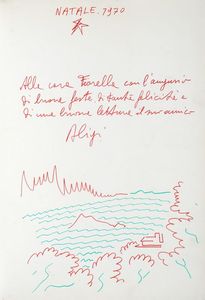 NATALE. 1970
Alla cara Fiorella con l'augurio
di buone feste di tanta felicità e
di una buona lettura il suo amico
Aligi